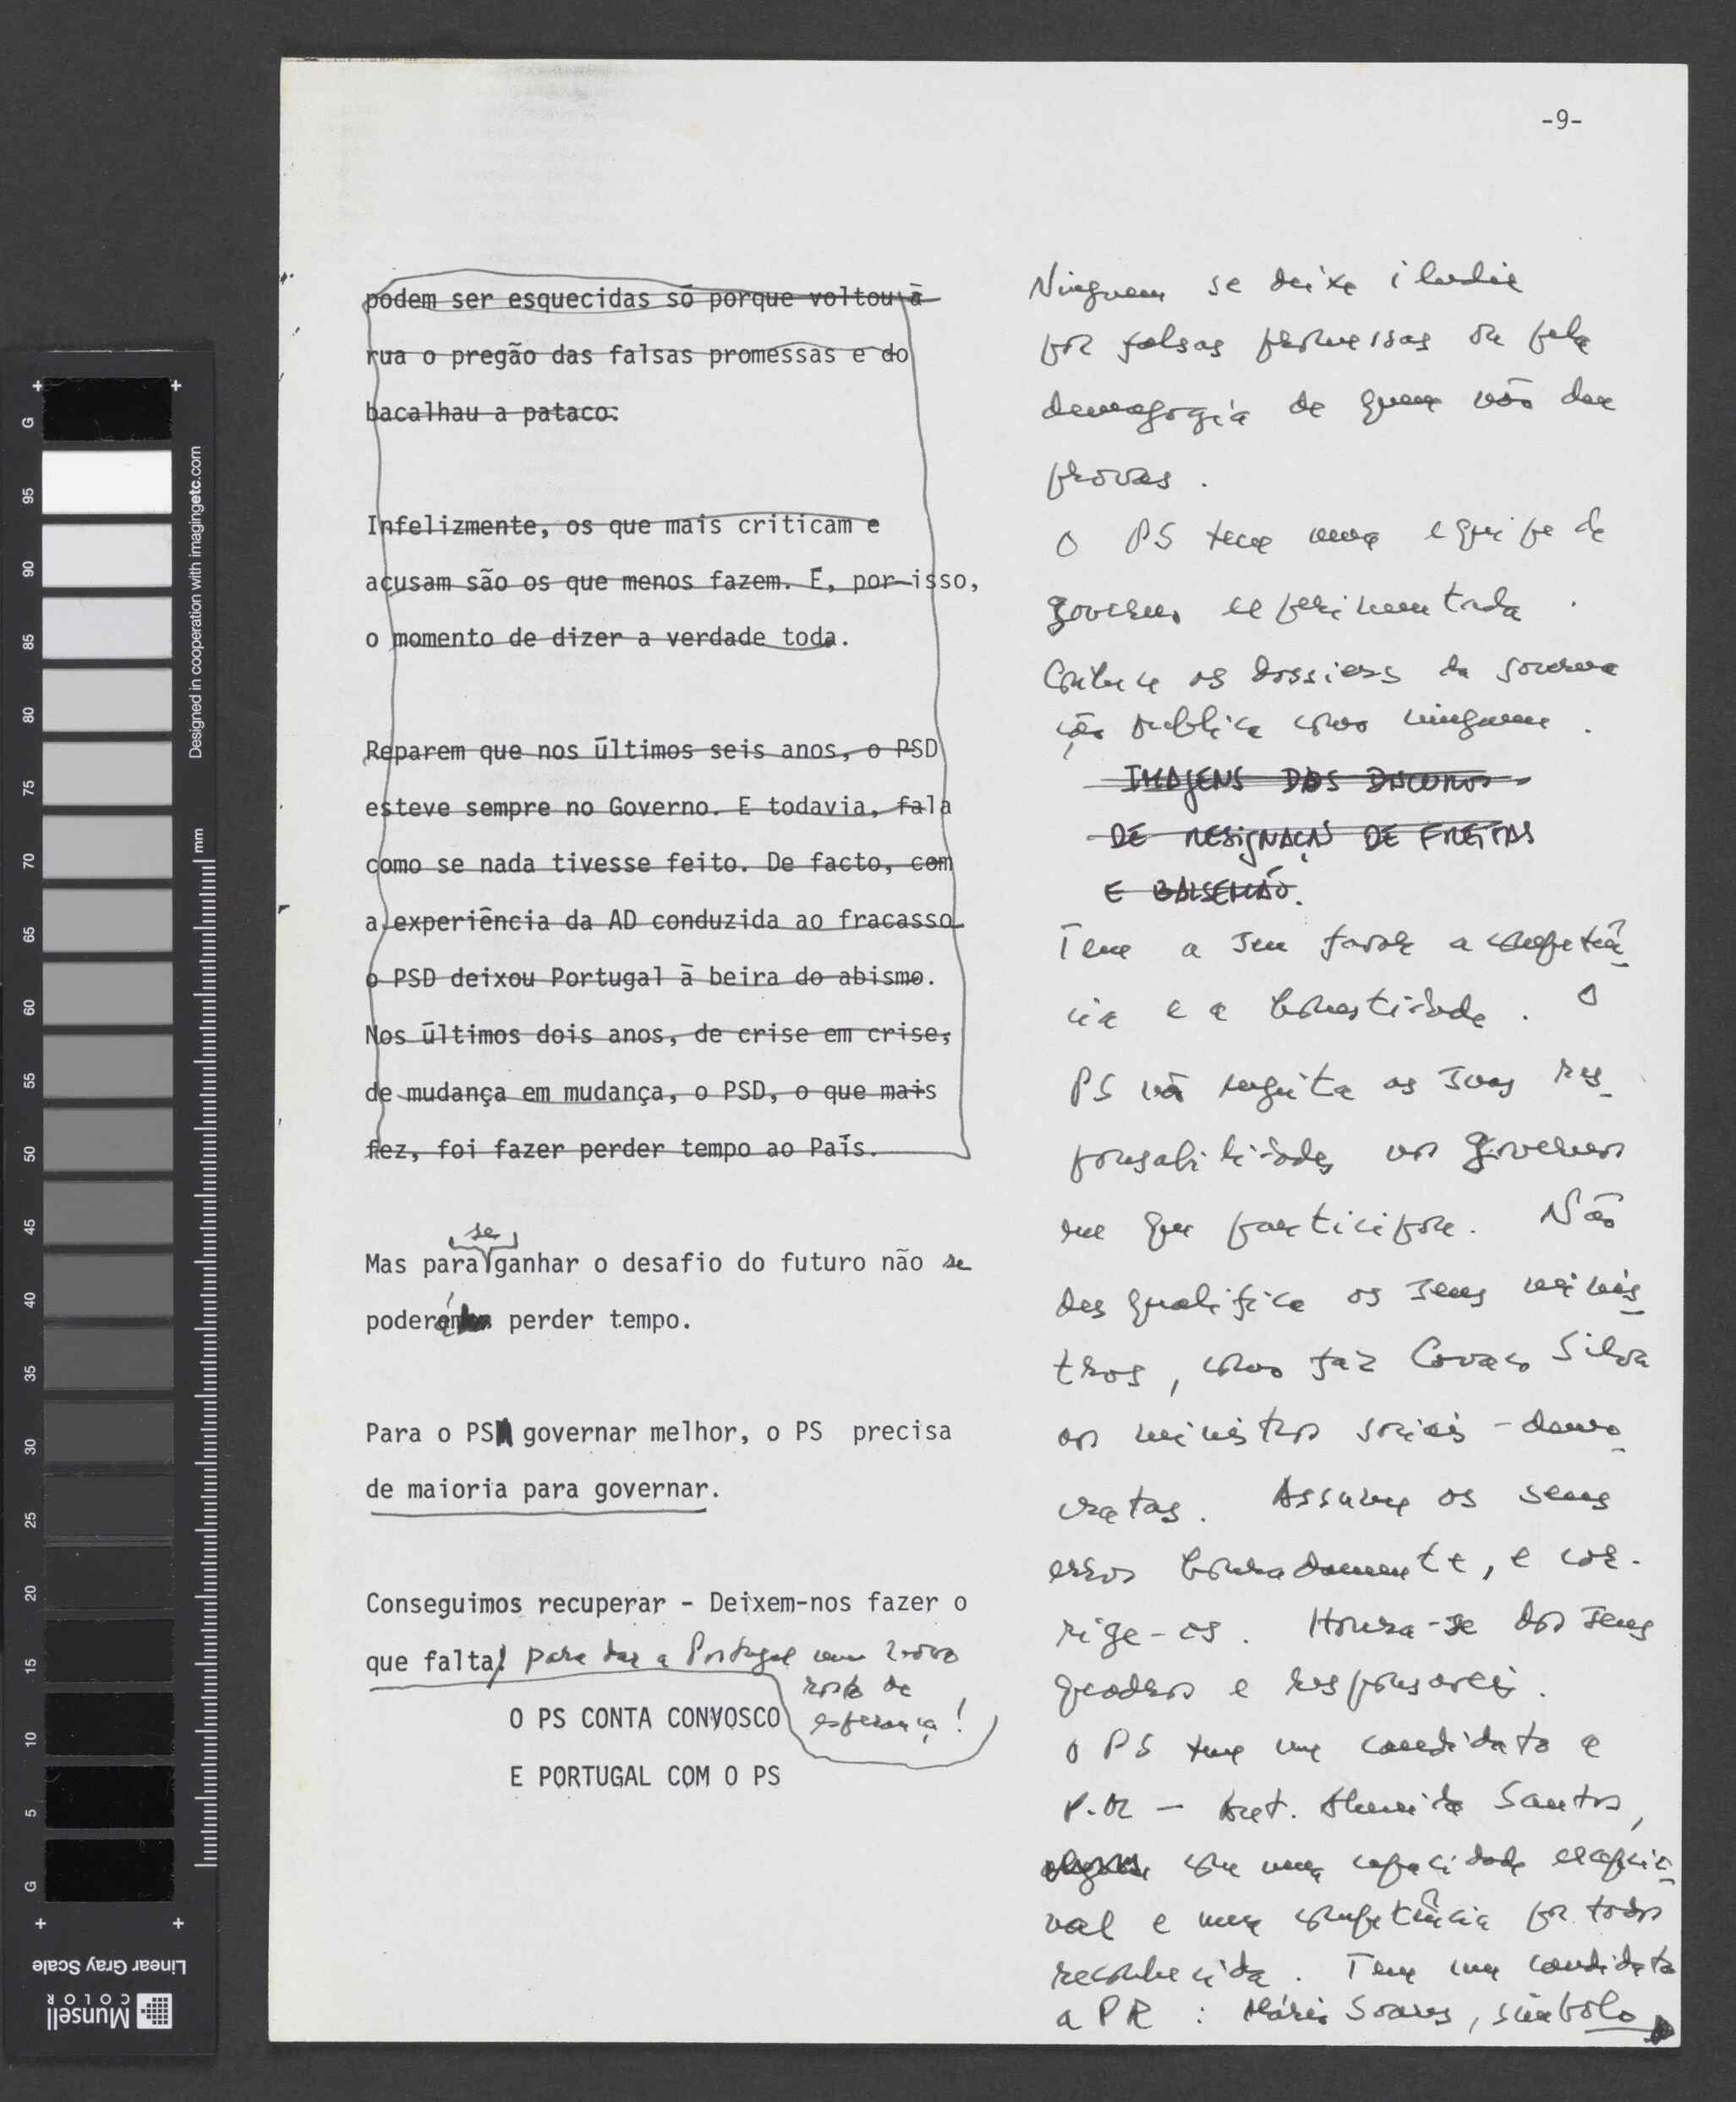 -9-
podem ser esquecidas só porque voltou à
rua o pregão das falsas promessas e do
bacalhau a pataco.
Infelizmente, os que mais criticam e
acusam são os que menos fazem. É, por isso,
o momento de dizer a verdade toda.
Reparem que nos últimos seis anos, o PSD
esteve sempre no Governo. E todavia, fala
como se nada tivesse feito. De facto, com
a experiência da AD conduzida ao fracasso
o PSD deixou Portugal à beira do abismo.
Nos últimos dois anos, de crise em crise,
de mudança em mudança, o PSD, o que mais
fez, foi fazer perder tempo ao País.
se
Mas para ganhar o desafio do futuro não se
poderá perder tempo.
Para o PS governar melhor, o PS precisa
de maioria para governar.
Conseguimos recuperar - Deixem-nos fazer o
que falta! para dar a Portugal um novo
rosto de
esperança!
O PS CONTA CONVOSCO
E PORTUGAL COM O PS
Ninguem se deixe iludir
por falsas promessas ou pela
demagogia de quem não deu
provas.
O PS tem uma equipe de
governo experimentada.
Conhece os dossiers da governa
ção publica como ninguem.
IMAGENS DOS DISCURSOS
DE RESIGNAÇÃO DE FREITAS
E BALSEMÃO.
Tem a seu favor a competên
cia e a honestidade. O
PS não regeita as suas res
ponsabilidades nos governos
em que participou. Não
desqualifica os seus minis
tros, como faz Cavaco Silva
aos ministros sociais-demo
cratas. Assume os seus
erros honradamente, e cor-
rige-os. Honra-se dos seus
quadros e responsaveis.
O PS tem um candidato a
P.M. - Ant. Almeida Santos,
com uma capacidade excepcio
nal e uma competência por todos
reconhecida. Tem um candidato
a PR: Mário Soares, símbolo
G 95 90 85 80 75 70 65 60 55 50 45 40 35 30 25 20 15 10 5 G
Designed in cooperation with imagingetc.com
mm
Linear Gray Scale
Munsell
COLOR